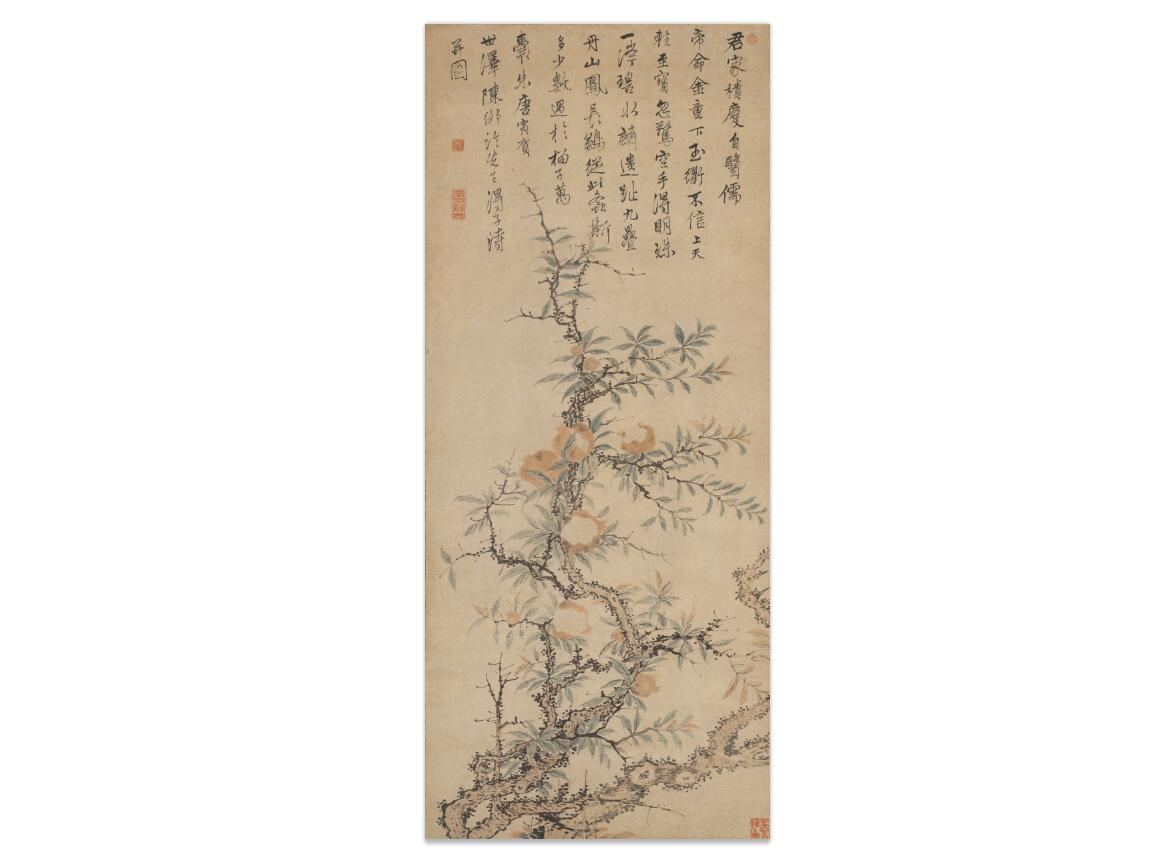 君家積慶自醫儒
帝命金童下玉衢不信上天
輕至寶忽驚空手淂明珠
一渟碧水麟遺趾九疊
丹山鳳長鶵從此螽斯
多少數過於榴子萬
囊朱唐寅賀
世澤陳先生淂子詩
并圖